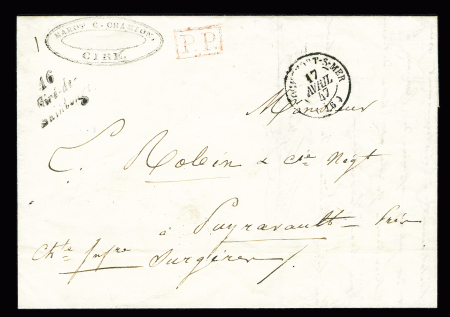 CIRÉ.
P.P.
16
ROCHEFORT-S-MER
17
AVRIL
47
(16)
Monsieur
L. Robin & Cie Négt
à Puyravault près
Chte Infre Surgères